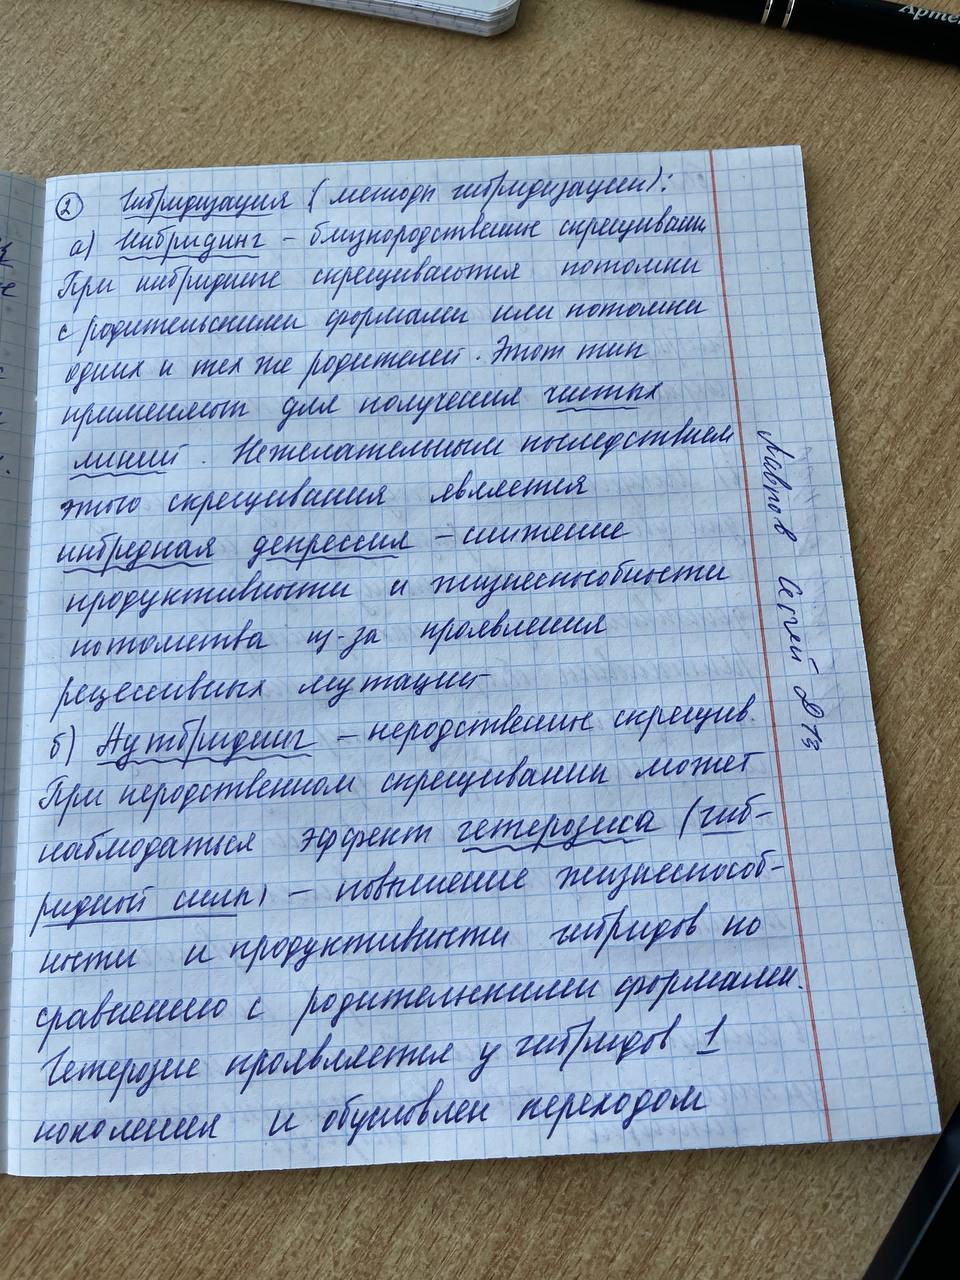 ② Гибридизация (методы гибридизации):
а) Инбридинг – близкородственные скрещивани
При инбридинге скрещиваются потомки
с родительскими формами или потомки
одних и тех же родителей. Этот тип
применяют для получения чистых
линий. Нежелательным последствием
этого скрещивания является
инбредная депрессия – снижение
продуктивности и жизнеспособности
потомства из-за проявления
рецессивных мутаций
б) Аутбридинг – неродственные скрещив.
При неродственном скрещивании может
наблюдаться эффект гетерозиса (гиб-
ридной силы) – повышение жизнеспособ-
ности и продуктивности гибридов по
сравнению с родительскими формами.
Гетерозис проявляется у гибридов 1
поколения и обусловлен переходом
Лавров Сергей